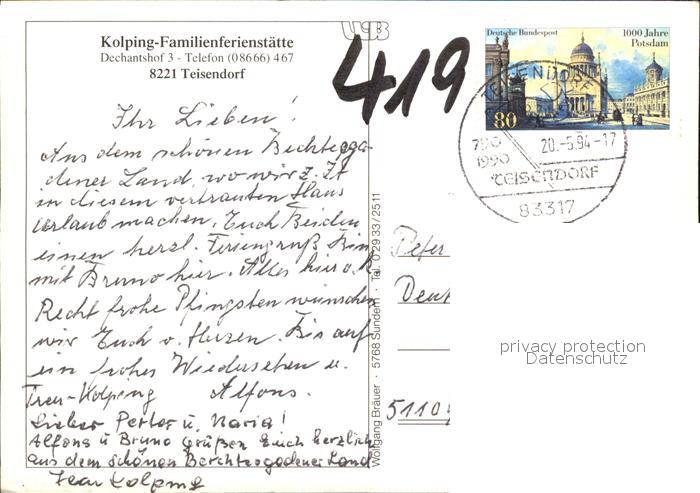 Kolping-Familienferienstätte
Dechantshof 3 - Telefon (08666) 467
8221 Teisendorf
419
Deutsche Bundespost
1000 Jahre
Potsdam
80
TEISENDORF
790
1990
20.-5.94-17
TEISENDORF
83317
Ihr Lieben!
Aus dem schönen Bechtesga-
dener Land, wo wir z. Zt
in diesem vertrauten Haus
Urlaub machen, Euch Beiden
einen herzl. Feriengruß. Bin
mit Bruno hier. Alles hier o.k.
Recht frohe Pfingsten wünschen
wir Euch v. Herzen. Bis auf
ein frohes Wiedersehen u.
Treu-Kolping Alfons.
Lieber Peter u. Maria!
Alfons u Bruno grüßen Euch herzlich
aus dem schönen Berchtesgadener Land
Treu Kolping
Wolfgang Bräuer · 5768 Sundern · Tel. 0 29 33 / 25 11
Peter
Deut
5110
privacy protection
Datenschutz